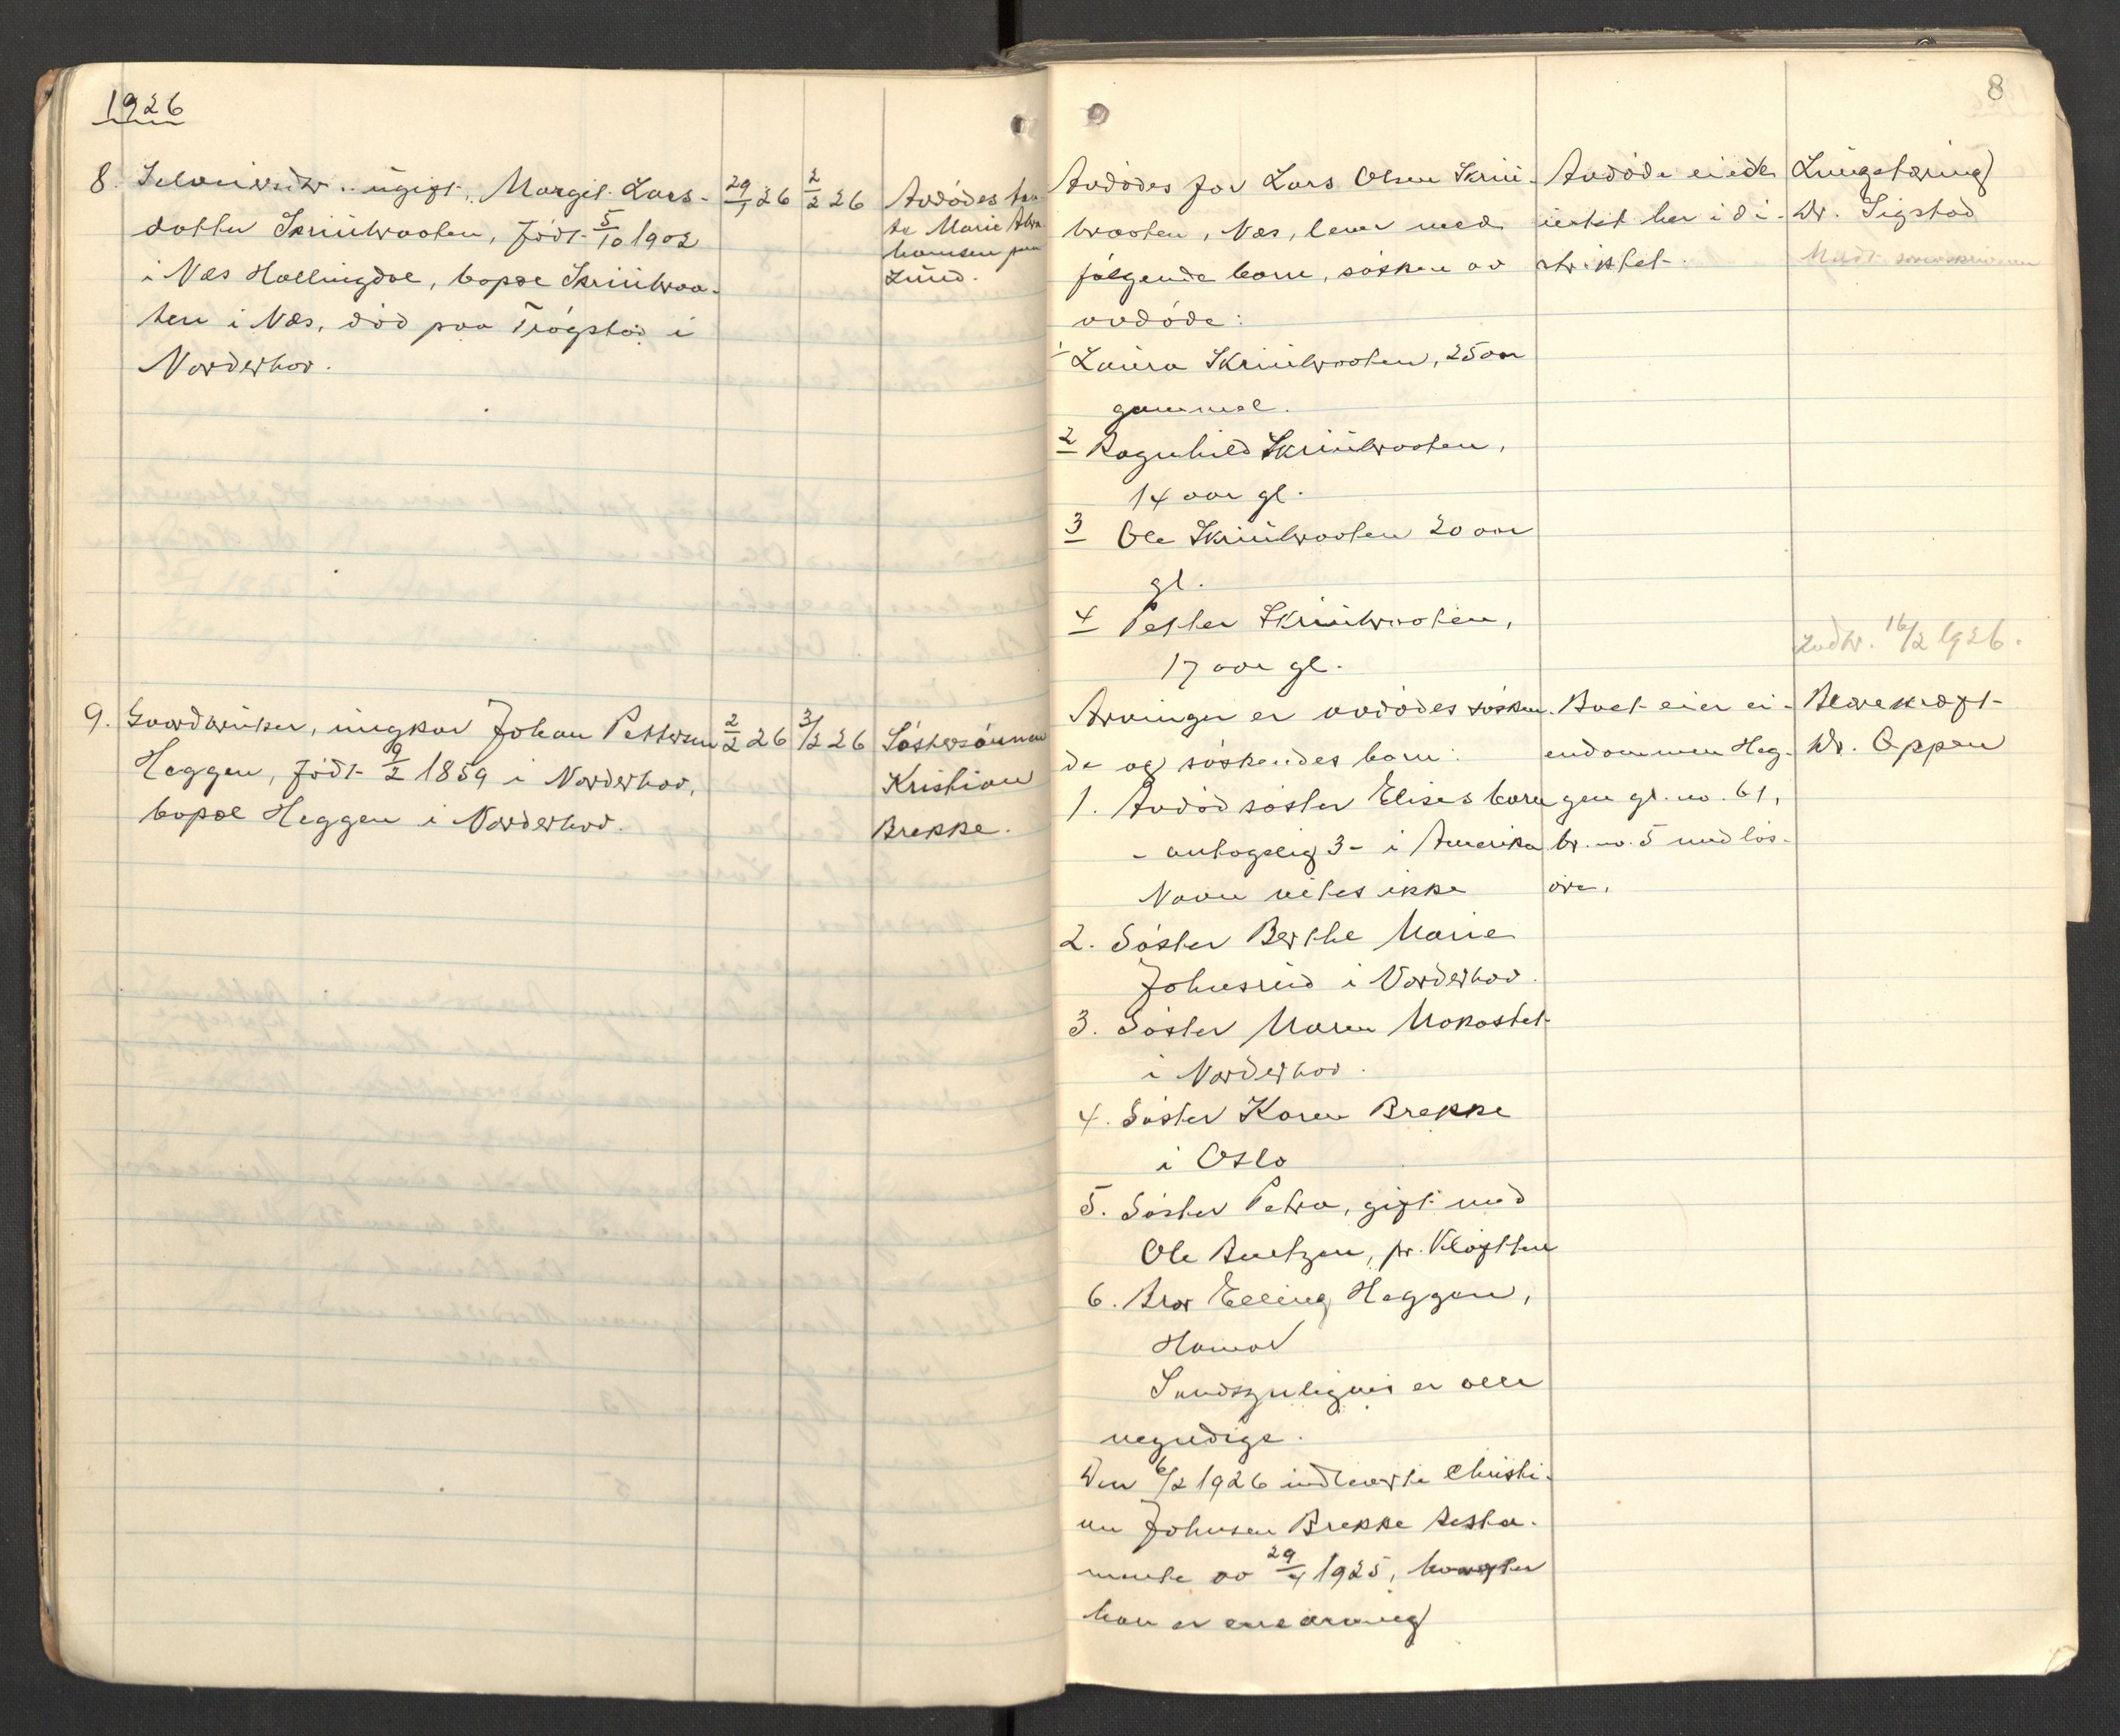 1926
8
8. Selveiersdtr. ugift, Margit Lars-
datter Skrinbraaten, født 5/10 1902
i Næs Hallingdal, bopæl Skrinbraa-
ten i Næs, død paa Trøgstad i
Norderhov.
29/1 26
2/2 26
Avdødes tan-
te Marie Abra
hamsen paa
Lund.
Avdødes far Lars Olsen Skrin-
braaten, Næs, lever med
følgende barn, søsken av
avdøde:
1 Laura Skrinbraaten, 25 aar
gammel.
2 Ragnhild Skrinbraaten,
14 aar gl.
3 Ole Skrinbraaten 20 aar
gl.
4 Petter Skrinbraaten,
17 aar gl.
Avdøde eiede
intet her i di-
striktet.
Lungetæring
Dr. Sigstad
Medt. sorenskriveren
9. Gaardbruker, ungkar Johan Pettersen
Heggen, født 9/2 1859 i Norderhov,
bopæl Heggen i Norderhov.
2/2 26
3/2 26
Søstersønnen
Kristian
Brekke.
Arvinger er avdødes søsken-
de og søskendes barn:
1. Avdød søster Elises barn
- antagelig 3 - i Amerika
Navn vites ikke
2. Søster Berthe Marie
Johnsrud i Norderhov.
3. Søster Maren Mokastet
i Norderhov.
4. Søster Karen Brekke
i Oslo
5. Søster Petra, gift med
Ole Berntzen, pr. Kløften
6. Bror Elling Heggen,
Hamar
Sandsynligvis er alle
myndige.
Den 6/2 1926 indleverte Christi-
an Johnsen Brekke testa-
mente av 29/4 1925, hvorefter
han er enearving
Boet eier ei-
endommen Heg-
gen gr. no. 61,
br. no. 5 med løs-
øre.
Indtr. 16/2 1926.
Blærekræft
Dr. Oppen